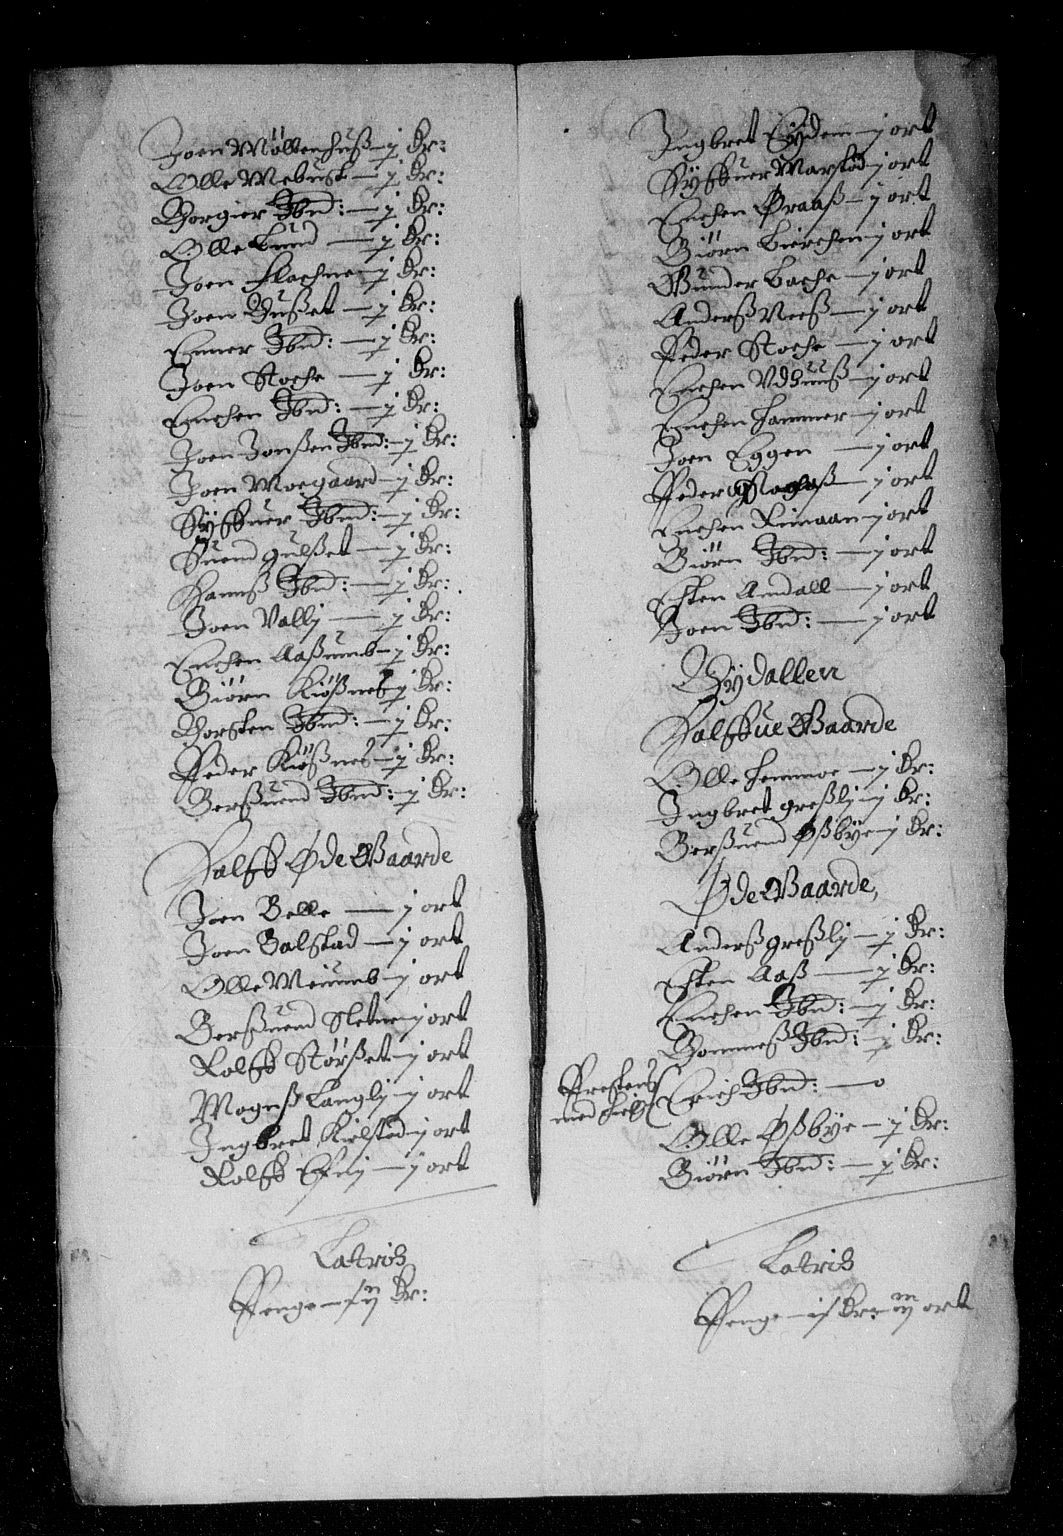 Joen Möllenhuß – j dr:
Olle Mebust – j dr:
Borgier Ibid: – j dr:
Olle Lund – j dr:
Joen Flachne – j dr:
Joen Dußet – j dr:
Enner Ibid: – j dr:
Joen Stoche – j dr:
Enchen Ibid: – j dr:
Joen Jonßen Ibid: – j dr:
Joen Moegaard – j dr:
Syffuer Ibid: – j dr:
Suend gulßet – j dr:
Hannß Ibid: – j dr:
Joen Vallj – j dr:
Enchen Aaßumb – j dr:
Biörn Kiößnes – j dr:
Thorsten Ibid: – j dr:
Peder Kiößnes – j dr:
Berßuend Ibid: – j dr:
Halff Øde Gaarde
Joen Belle – j ort
Joen Balstad – j ort
Olle Meiumb – j ort
Berßuend Sletne – j ort
Rolff Störßet – j ort
Mogenß Langlj – j ort
Ingbret Kielstad – j ort
Rolff Eßlj – j ort
Latris
Penge – dr:
Ingbret Eydem – j ort
Syffuer Marstad – j ort
Enchen Øraaß – j ort
Biörn Bierchen – j ort
Gunder Bache – j ort
Anderß Neeß – j ort
Peder Stoche – j ort
Enchen Vdhuuß – j ort
Enchen hammer – j ort
Joen Eggen – j ort
Peder Mogaß – j ort
Enchen Rimaan – j ort
Biörn Ibid: – j ort
Esten Amdall – j ort
Joen Ibid: – j ort
Tydallen
Halffue Gaarde
Olle hemmoe – j dr:
Ingbret greßlj – j dr:
Berßuend Østbye – j dr:
Øde Gaarde,
Anderß greßlj – j dr:
Esten Aaß – j dr:
Enchen Ibid: – j dr:
Thommeß Ibid: – j dr:
Prestens
Erich Ibid: – 0
Olle Øßbye – j dr:
Biörn Ibid: – j dr:
Latris
Penge – dr: ort